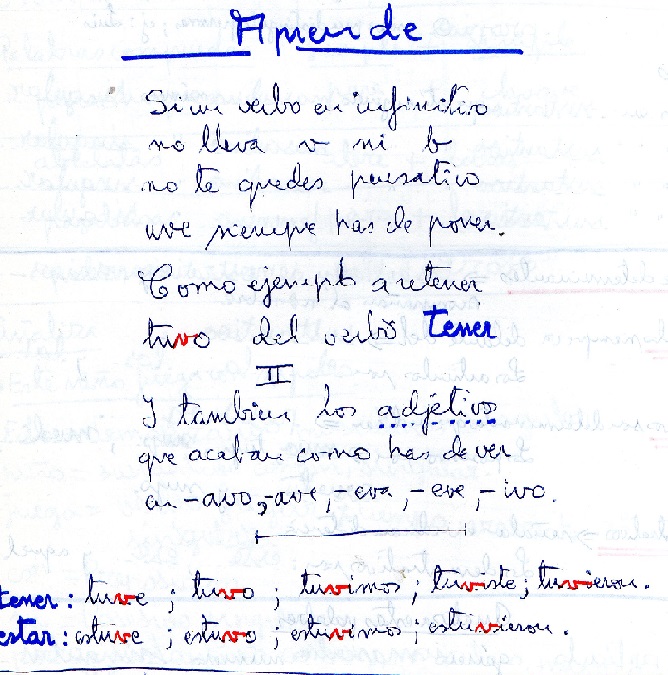 Aprende
Si un verbo en infinitivo
no lleva v ni b
no te quedes pensativo
uve siempre has de poner.
Como ejemplo a retener
tuvo del verbo tener
II
Y también los adjetivos
que acaban como has de ver
en -avo, -ave, -eva, -eve, -ivo.
tener: tuve ; tuvo ; tuvimos ; tuviste ; tuvieron.
estar: estuve ; estuvo ; estuvimos ; estuvieron.